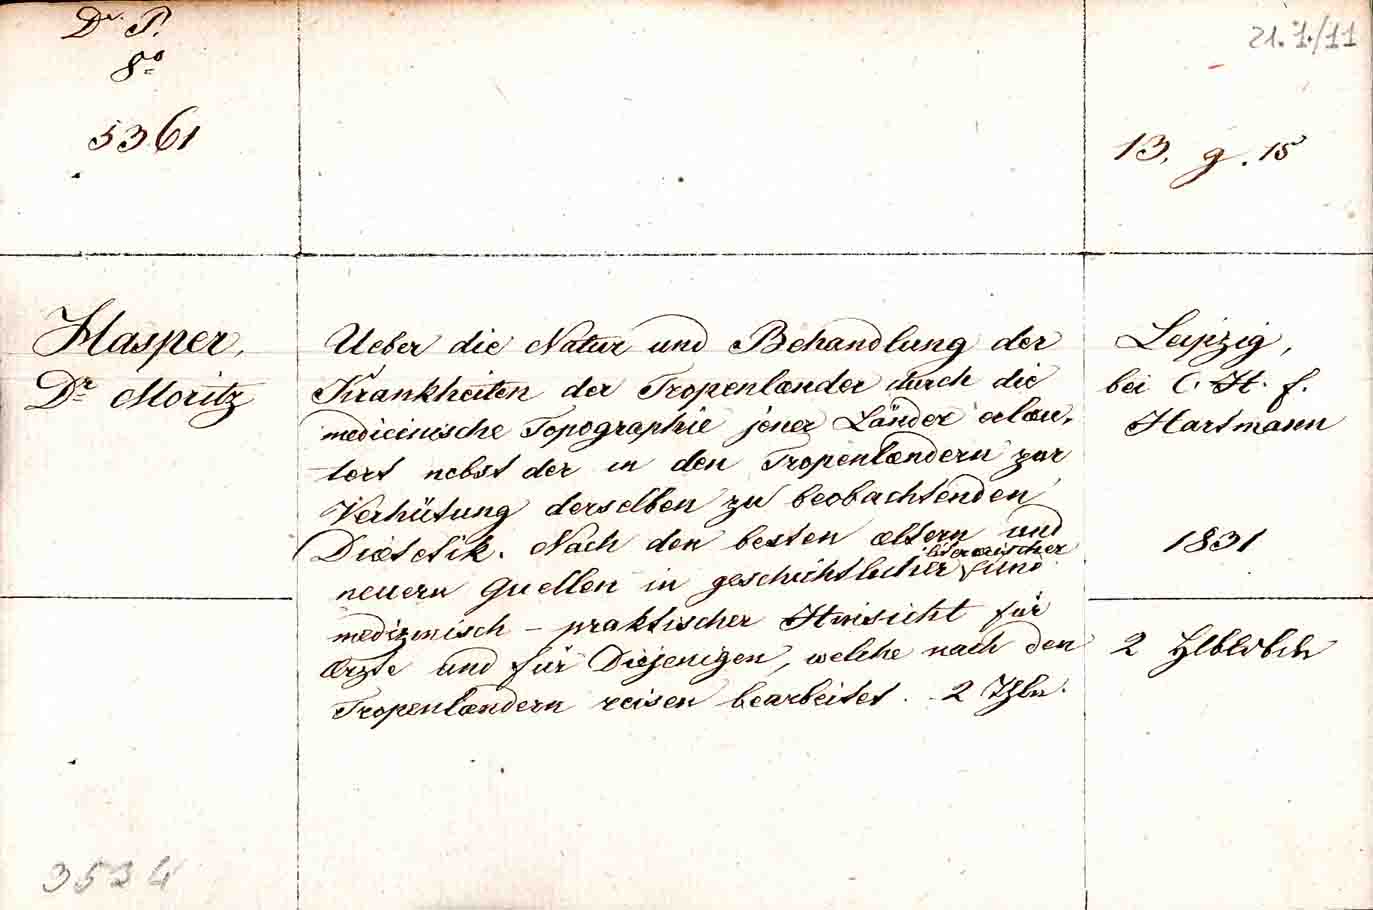 Dr. P.
8o
5361
21.7./11
13. g. 15
Hasper,
Dr Moritz
Ueber die Natur und Behandlung der
Krankheiten der Tropenlænder durch die
medicinische Topographie jener Länder erlæu-
tert nebst der in den Tropenlændern zur
Verhütung derselben zu beobachtenden
Diætetik. Nach den besten æltern und
neuern Quellen in geschichtlicher literærischer und
medizinisch - praktischer Hinsicht für
Ærzte und für Diejenigen, welche nach den
Tropenlændern reisen bearbeitet. 2 Thle.
Leipzig,
bei C. H. f.
Hartmann
1831
2 Hlbldrbde
3534